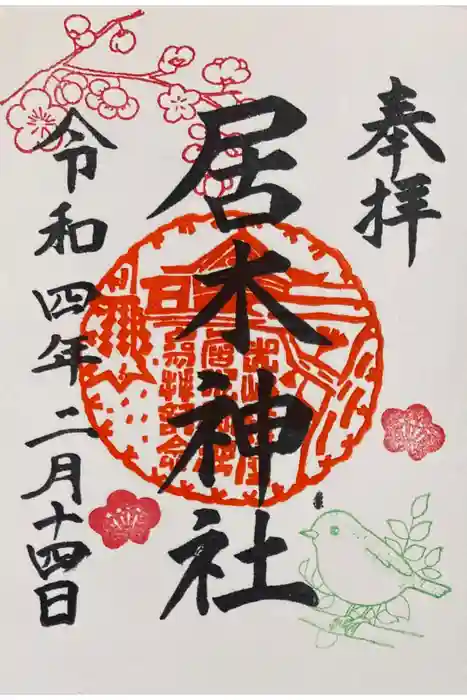 奉拝
居木神社
令和四年二月十四日